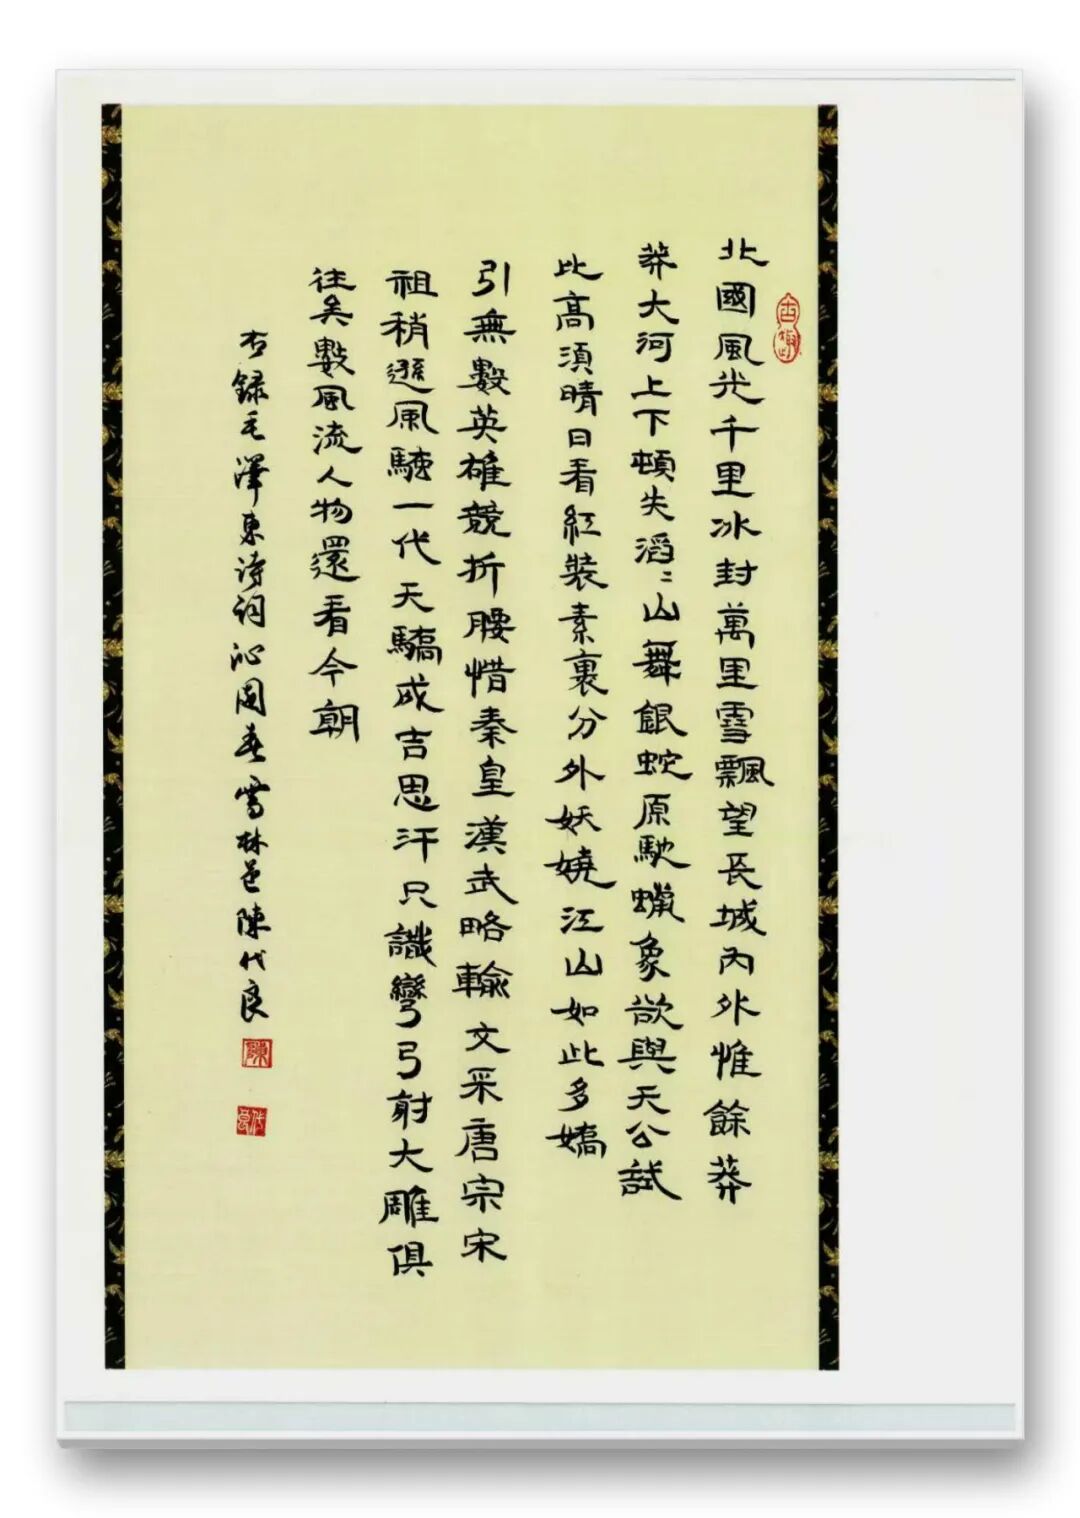 北國風光千里冰封萬里雪飄望長城內外惟餘莽
莽大河上下頓失滔〻山舞銀蛇原馳蠟象欲與天公試
比高須晴日看紅裝素裹分外妖嬈江山如此多嬌
引無數英雄競折腰惜秦皇漢武略輸文采唐宗宋
祖稍遜風騷一代天驕成吉思汗只識彎弓射大雕俱
往矣數風流人物還看今朝
右錄毛澤東詩詞沁園春雪林邑陳代良
陳
代良